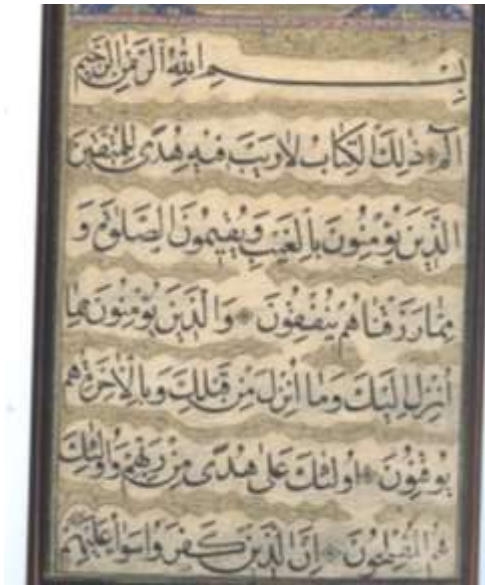 بِسْمِ اللهِ الرَّحْمٰنِ الرَّحِيمِ
الٓمٓ ذٰلِكَ الْكِتَابُ لَا رَيْبَ فِيهِ هُدًى لِلْمُتَّقِينَ
الَّذِينَ يُؤْمِنُونَ بِالْغَيْبِ وَيُقِيمُونَ الصَّلٰوةَ وَ
مِمَّا رَزَقْنَاهُمْ يُنْفِقُونَ وَالَّذِينَ يُؤْمِنُونَ بِمَا
أُنْزِلَ إِلَيْكَ وَمَا أُنْزِلَ مِنْ قَبْلِكَ وَبِالْاٰخِرَةِ هُمْ
يُوقِنُونَ اُولٰئِكَ عَلٰى هُدًى مِنْ رَبِّهِمْ وَاُولٰئِكَ
هُمُ الْمُفْلِحُونَ اِنَّ الَّذِينَ كَفَرُوا سَوَاءٌ عَلَيْهِمْ